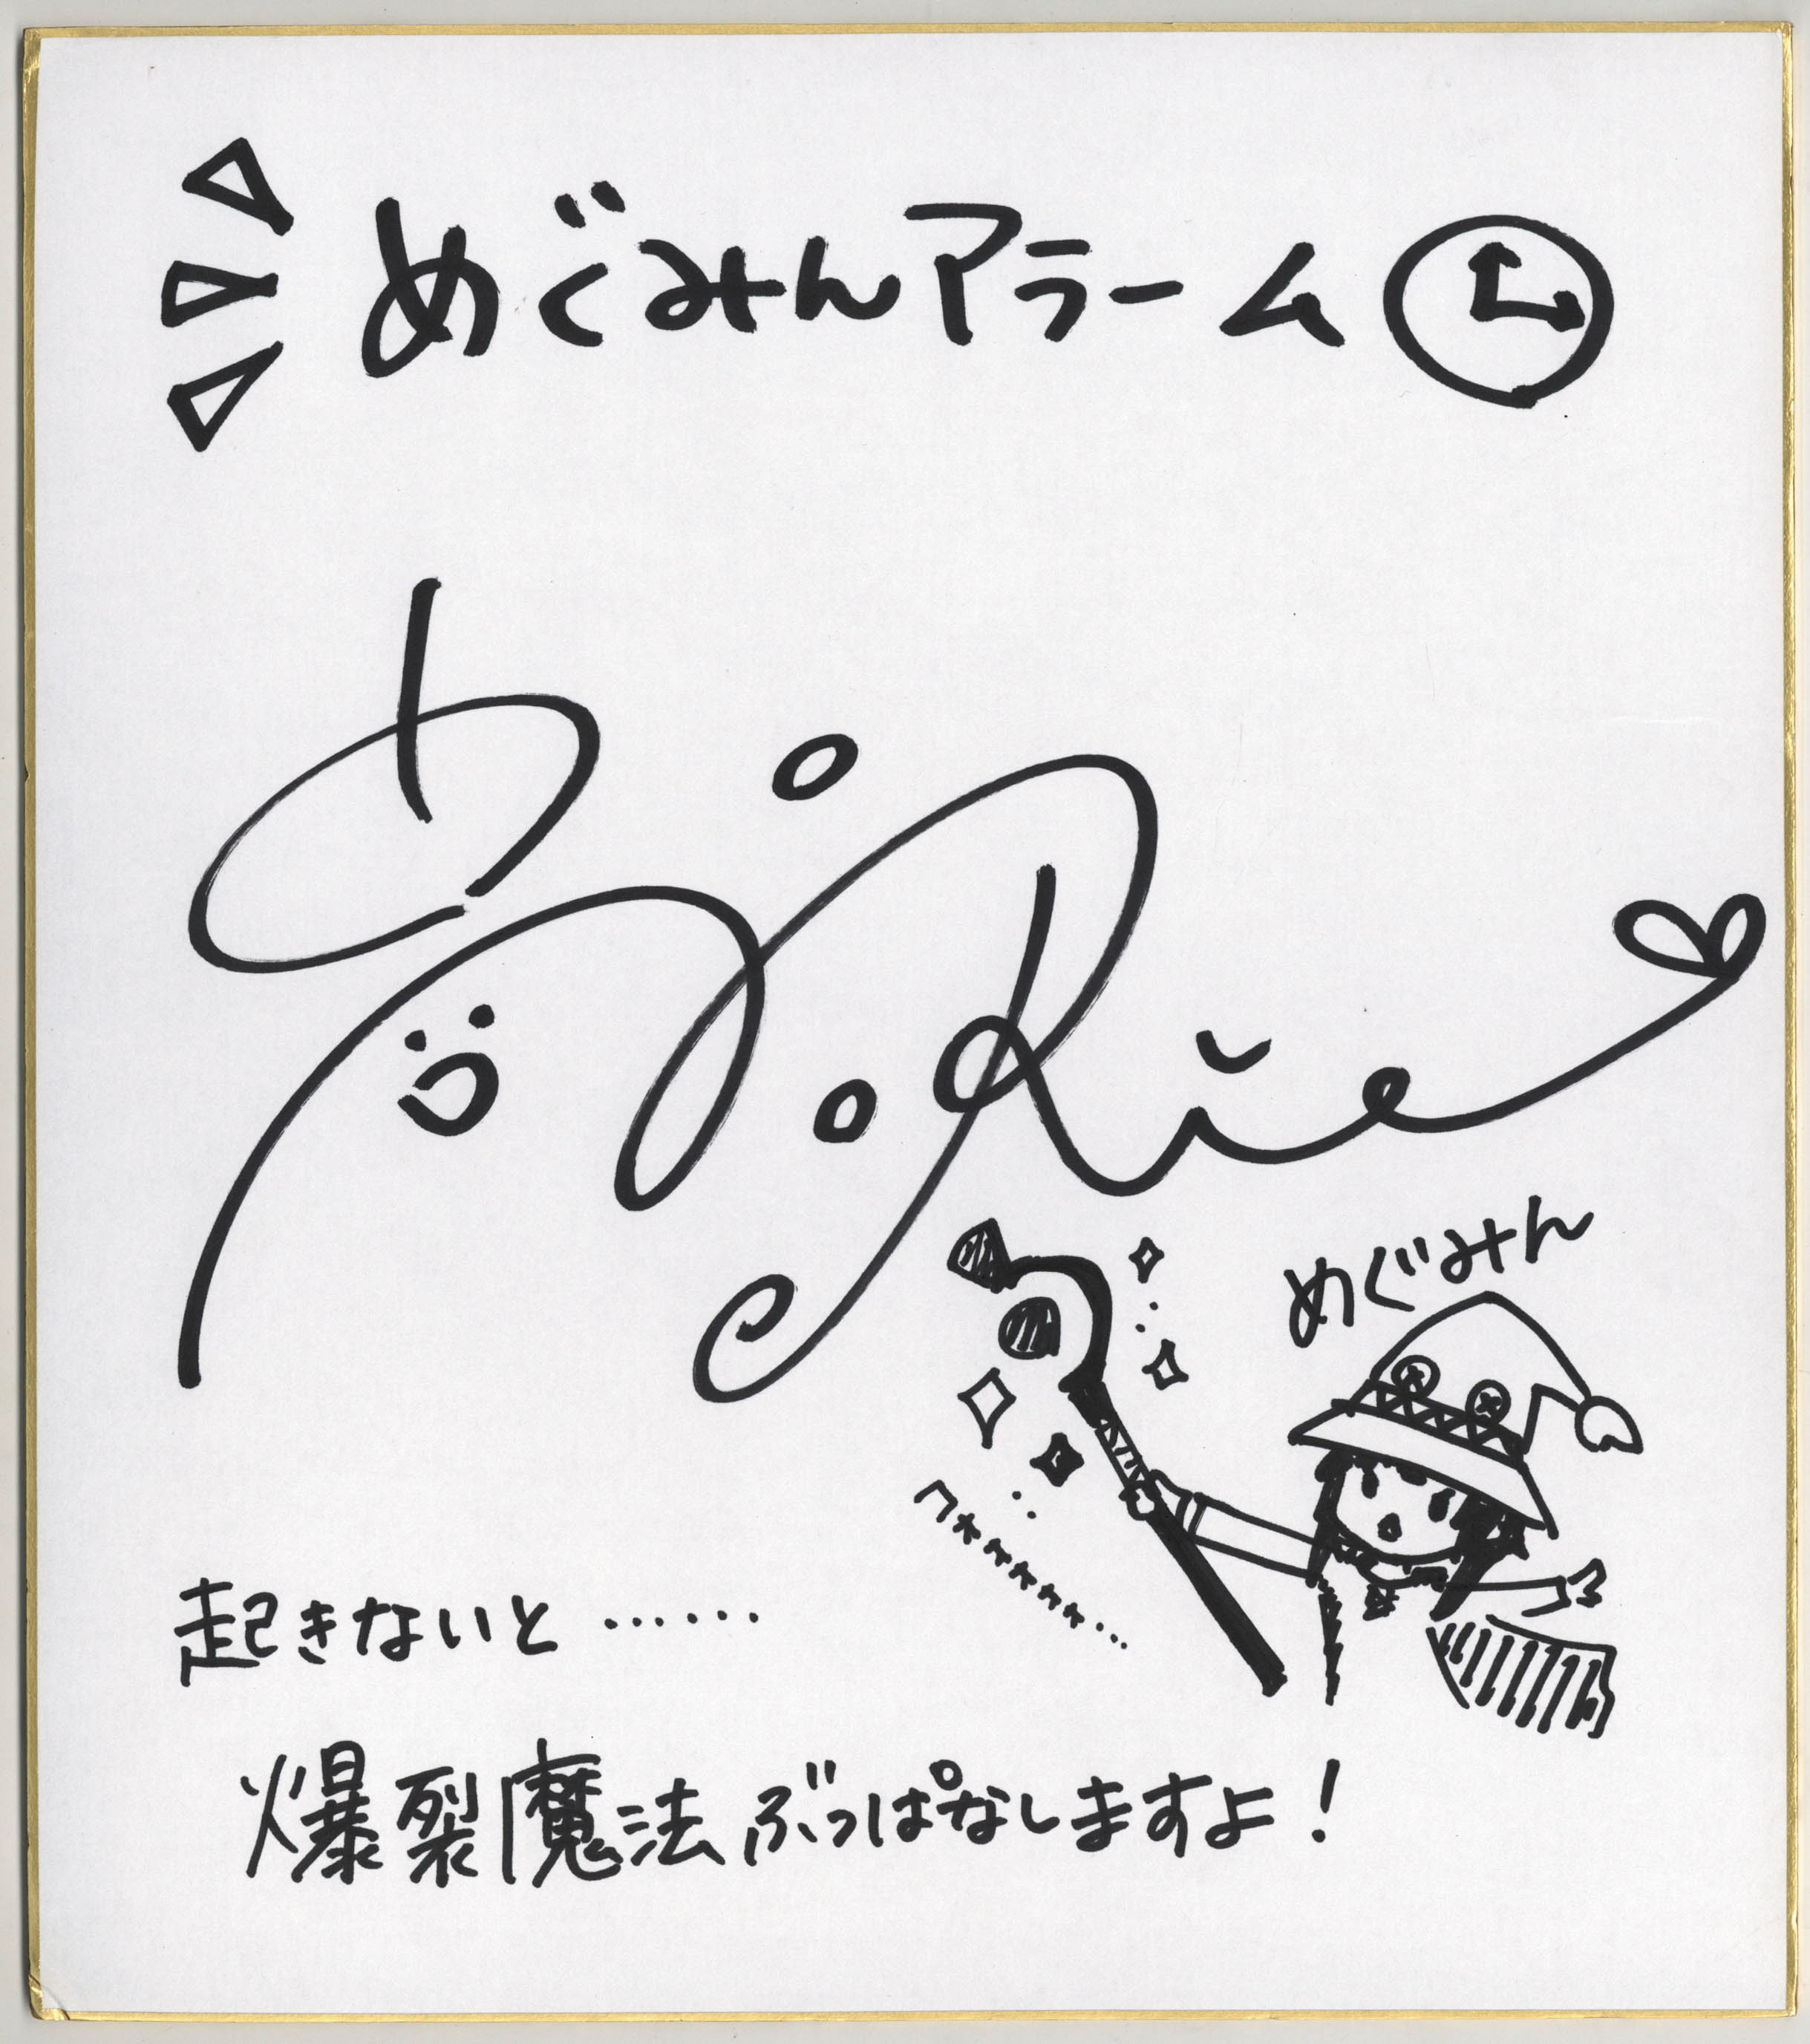 めぐみんアラーム
Rie
めぐみん
コォォォォォォ…
起きないと……
爆裂魔法ぶっぱなしますよ！